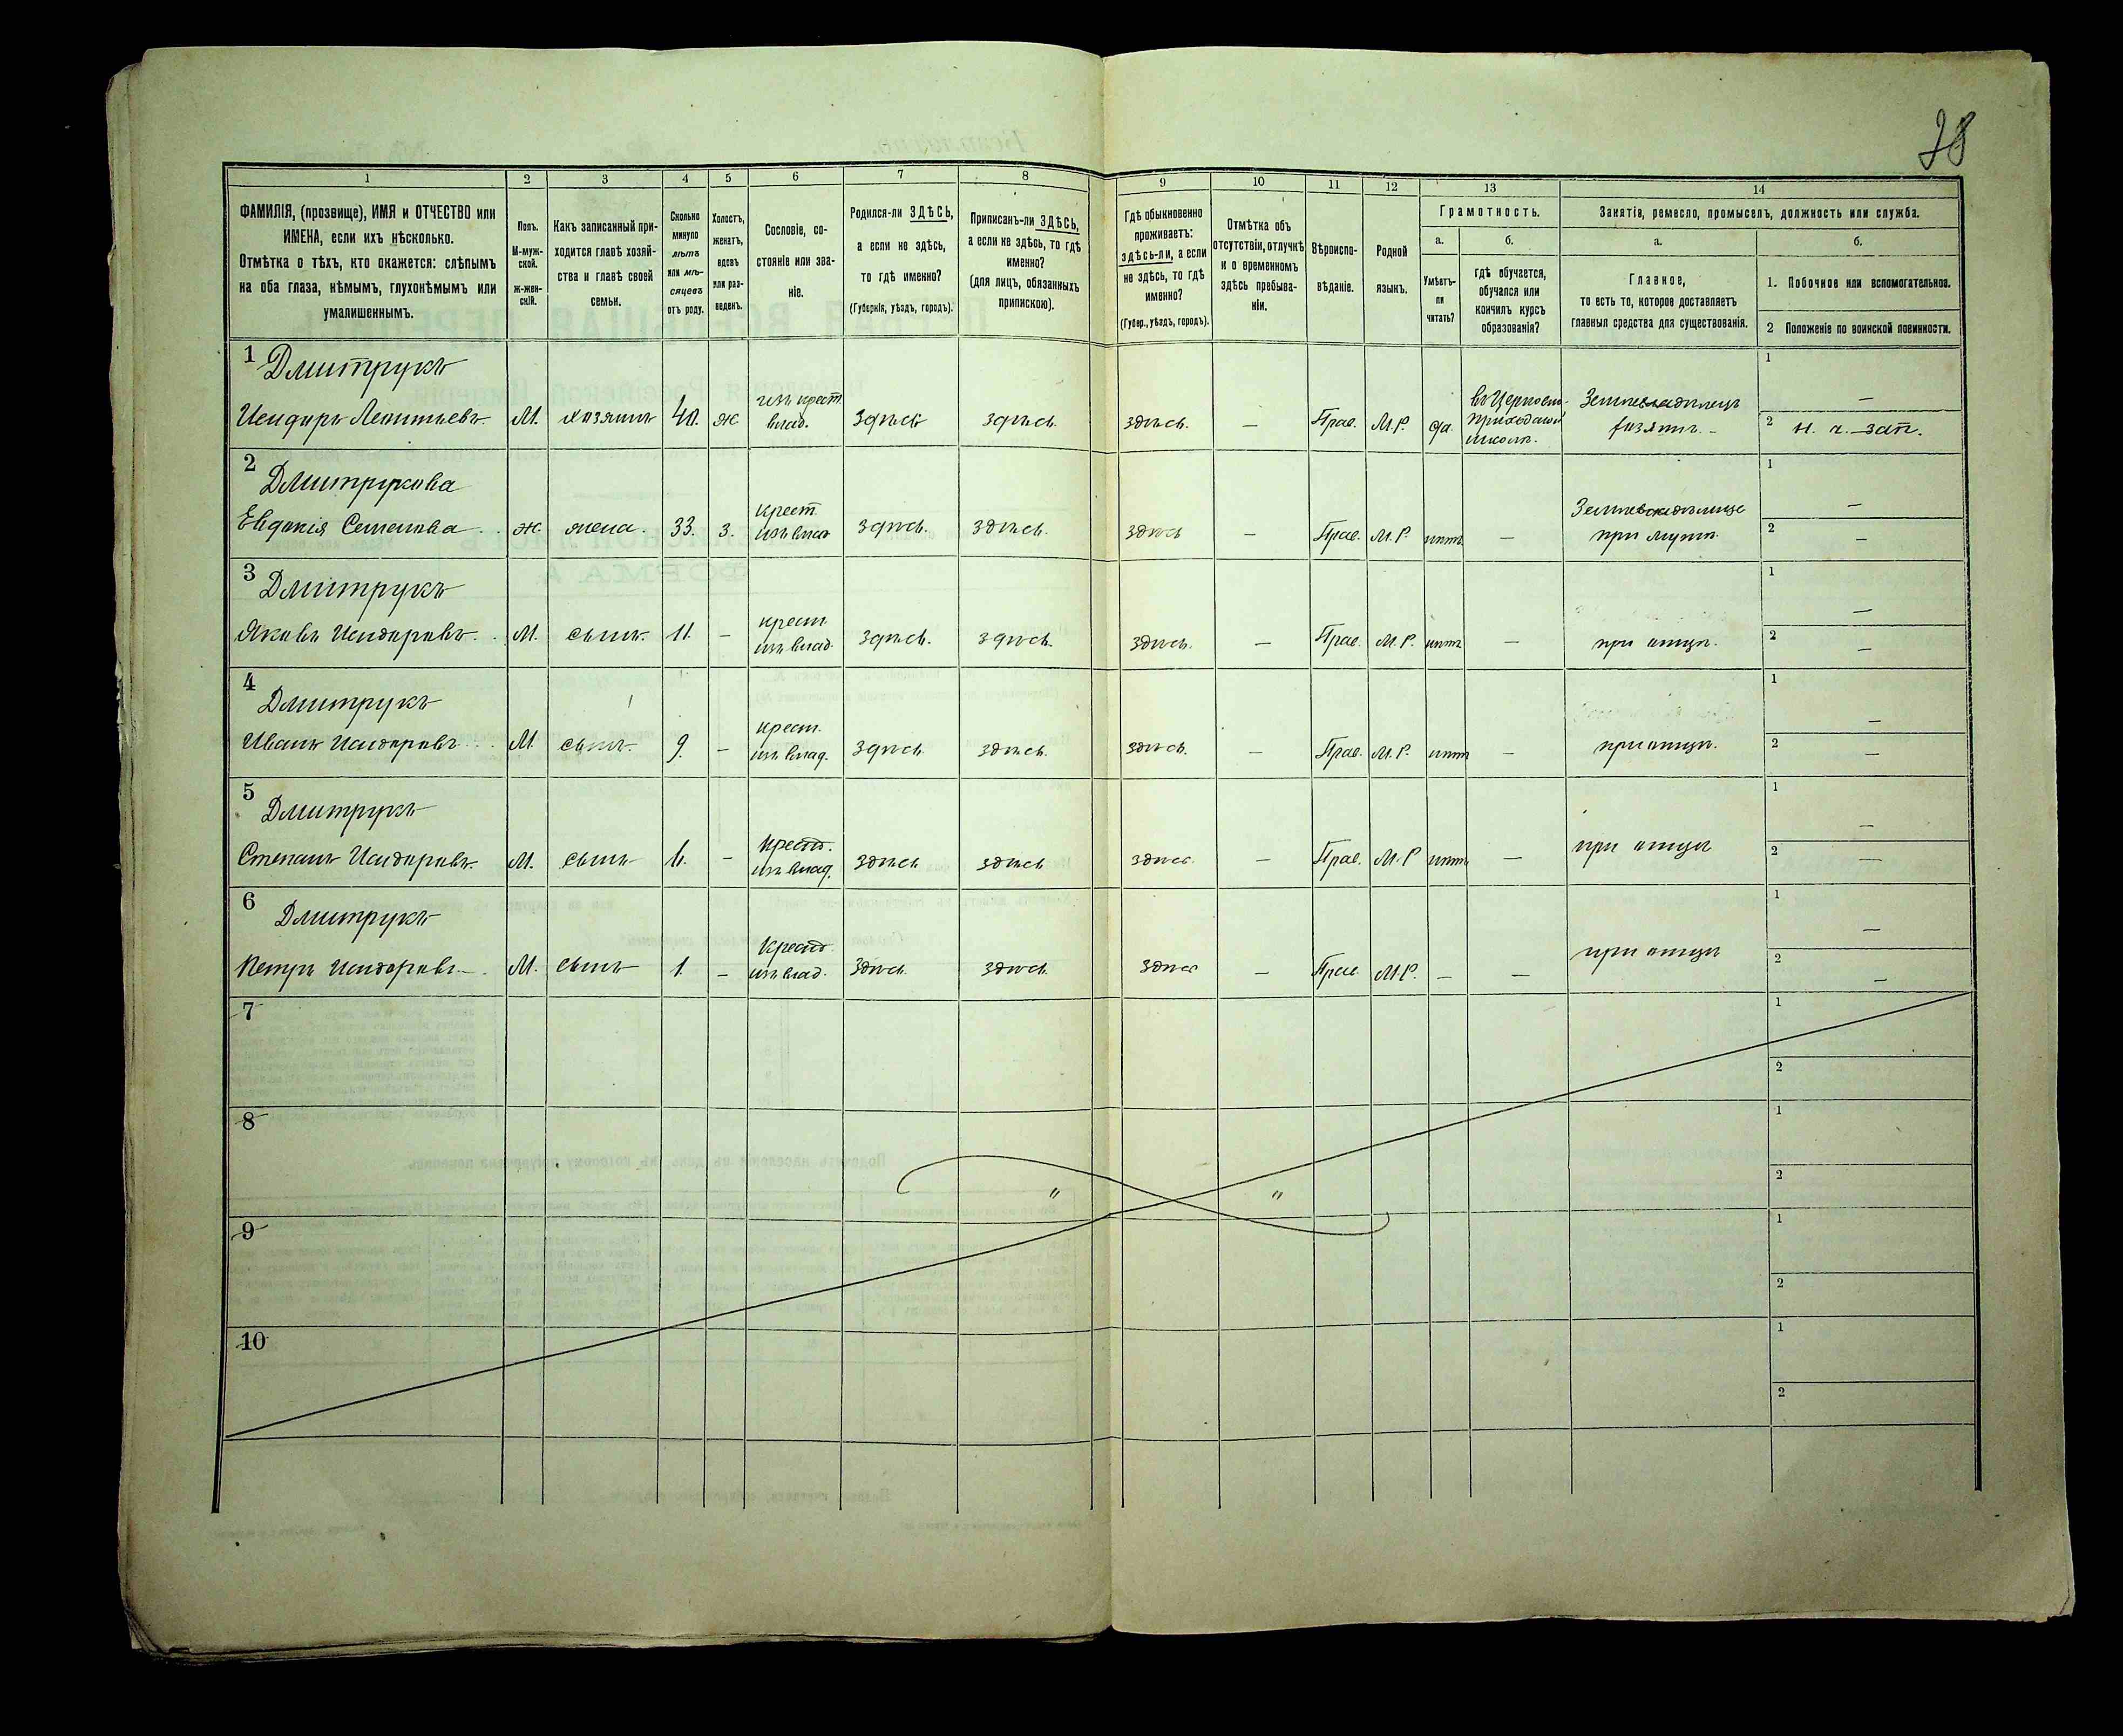 38
1
2
3
4
5
6
7
8
9
10
11
12
13
14
ФАМИЛІЯ, (прозвище), ИМЯ и ОТЧЕСТВО или
ИМЕНА, если ихъ нѣсколько.
Отмѣтка о тѣхъ, кто окажется: слѣпымъ
на оба глаза, нѣмымъ, глухонѣмымъ или
умалишеннымъ.
Полъ.
М-муж-
ской.
ж-жен-
скій.
Какъ записанный при-
ходится главѣ хозяй-
ства и главѣ своей
семьи.
Сколько
минуло
лѣтъ
или мѣ-
сяцевъ
отъ роду.
Холостъ,
женатъ,
вдовъ
или раз-
веденъ.
Сословіе, со-
стояніе или зва-
ніе.
Родился-ли ЗДѢСЬ,
а если не здѣсь,
то гдѣ именно?
(Губернія, уѣздъ, городъ).
Приписанъ-ли ЗДѢСЬ,
а если не здѣсь, то гдѣ
именно?
(для лицъ, обязанныхъ
припискою).
Гдѣ обыкновенно
проживаетъ:
здѣсь-ли, а если
не здѣсь, то гдѣ
именно?
(Губер., уѣздъ, городъ).
Отмѣтка объ
отсутствіи, отлучкѣ
и о временномъ
здѣсь пребыва-
ніи.
Вѣроиспо-
вѣданіе.
Родной
языкъ.
Грамотность.
а.
Умѣетъ-
ли
читать?
б.
гдѣ обучается,
обучался или
кончилъ курсъ
образованія?
Занятіе, ремесло, промыселъ, должность или служба.
а.
Главное,
то есть то, которое доставляетъ
главныя средства для существованія.
б.
1. Побочное или вспомогательное.
2 Положеніе по воинской повинности.
1 Дмитрукъ
Исидоръ Леонтьевъ М. хозяинъ 40. ж изъ крест. влад. здѣсь здѣсь. здѣсь. — Прав. М.Р. да въ Церковно-приходской школѣ. Земледѣлецъ хозяинъ. 1 — 2 н. ч. зап.
2 Дмитрукова
Евдокія Семенова ж. жена. 33. з. крест. изъ влад здѣсь. здѣсь. здѣсь — Прав. М.Р. нѣтъ — при мужѣ. 1 — 2 —
3 Дмитрукъ
Яковъ Исидоровъ М. сынъ. 11. — крест изъ влад. здѣсь. здѣсь. здѣсь. — Прав. М.Р. нѣтъ — при отцѣ. 1 — 2 —
4 Дмитрукъ
Иванъ Исидоровъ М. сынъ. 9. — крест. изъ влад. здѣсь здѣсь. здѣсь. — Прав. М.Р. нѣтъ — при отцѣ. 1 — 2 —
5 Дмитрукъ
Степанъ Исидоровъ. М. сынъ 6. — крест. изъ влад. здѣсь здѣсь здѣсь. — Прав. М.Р нѣтъ — при отцѣ 1 — 2 —
6 Дмитрукъ
Петръ Исидоровъ М. сынъ 1. — Крест. изъ влад. здѣсь. здѣсь. здѣсь — Прав М.Р. — — при отцѣ 1 — 2 —
7
1
2
8
1
2
" "
9
1
2
10
1
2